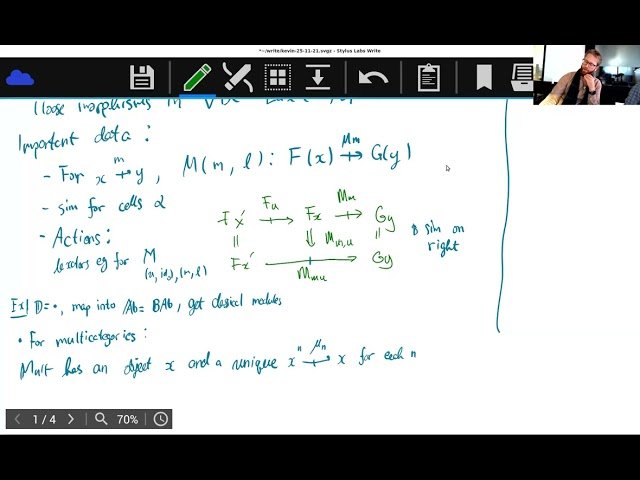 *~/write/kevin-25-11-21.svgz - Stylus Labs Write
loose morphisms in
Important data:
- For x m↦ y, M(m, l): F(x) Mm↦ G(y)
- sim for cells α
- Actions:
leaders eg for M (u, id₂), (m, l)
Fx' Fu Fx Mm Gy
Mm,u
Fx' Mmu Gy
& sim on right
Ex] D=•, map into Ab = BAb, get classical modules
• For multicategories:
Mult has an object x and a unique xⁿ μn↦ x for each n
1 / 4
70%